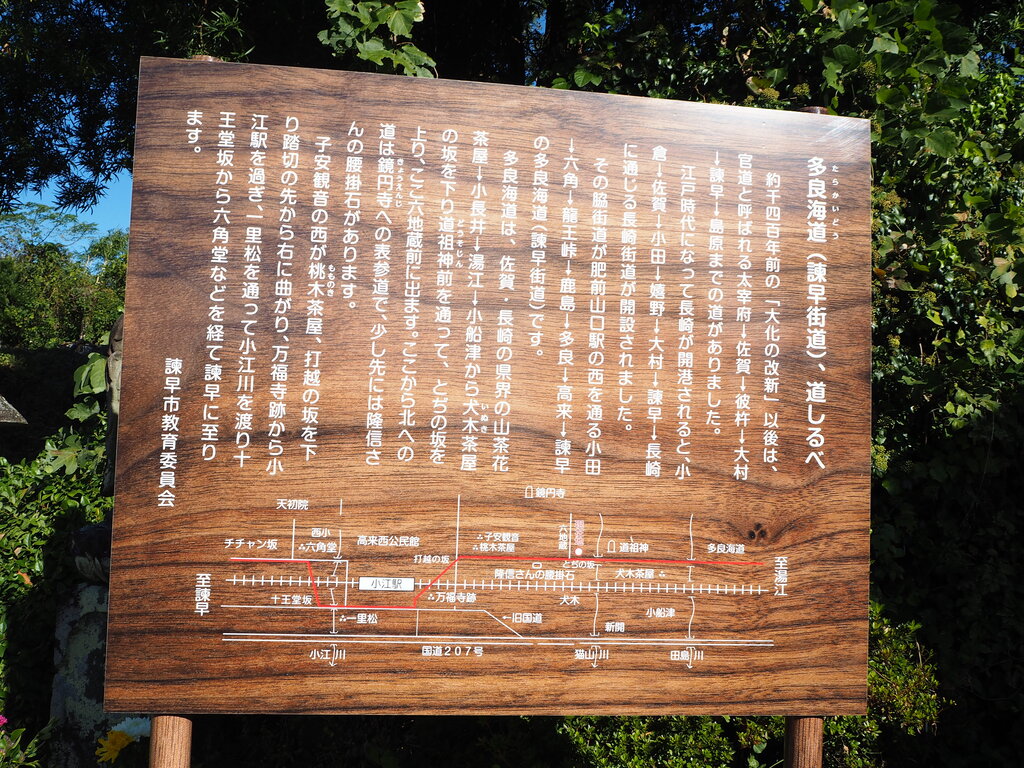 多良海道（諫早街道）、道しるべ
たらかいどう
約千四百年前の「大化の改新」以後は、
官道と呼ばれる太宰府→佐賀→彼杵→大村
→諫早→島原までの道がありました。
江戸時代になって長崎が開港されると、小
倉→佐賀→小田→嬉野→大村→諫早→長崎
に通じる長崎街道が開設されました。
その脇街道が肥前山口駅の西を通る小田
→六角→龍王峠→鹿島→多良→高来→諫早
の多良海道（諫早街道）です。
多良海道は、佐賀・長崎の県界の山茶花
茶屋→小長井→湯江→小船津から犬木茶屋
いぬき
の坂を下り道祖神前を通って、とちの坂を
どうそじん
上り、ここ六地蔵前に出ます。ここから北への
道は鏡円寺への表参道で、少し先には隆信さ
きょうえんじ
んの腰掛石があります。
子安観音の西が桃木茶屋、打越の坂を下
もものき
り踏切の先から右に曲がり、万福寺跡から小
江駅を過ぎ、一里松を通って小江川を渡り十
王堂坂から六角堂などを経て諫早に至り
ます。
諫早市教育委員会
天初院
鏡円寺
チチャン坂
西小
六角堂
高来西公民館
打越の坂
子安観音
桃木茶屋
六地蔵
現在地
道祖神
多良海道
とちの坂
至諫早
小江駅
隆信さんの腰掛石
犬木茶屋
至湯江
十王堂坂
万福寺跡
犬木
一里松
←旧国道
新開
小船津
小江川
国道207号
猫山川
田島川